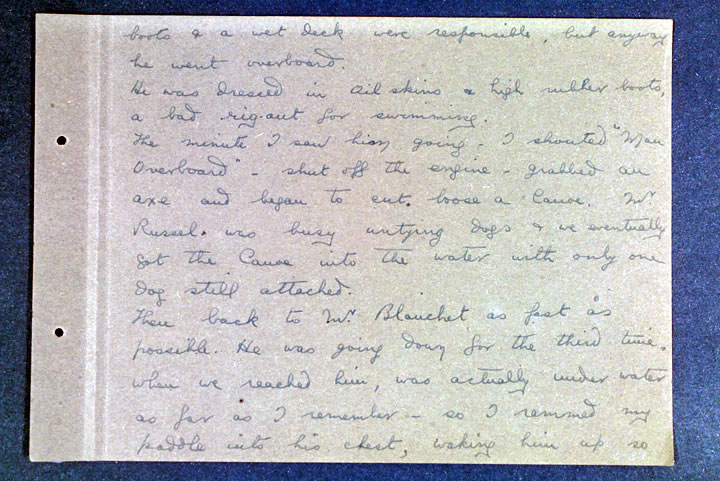 boots & a wet deck were responsible, but anyway
he went overboard.
He was dressed in oil skins & high rubber boots,
a bad rig-out for swimming.
The minute I saw him going - I shouted "Man
Overboard" - shut off the engine - grabbed an
axe and began to cut loose a Canoe. Mr
Russel. was busy untying Dogs & we eventually
got the Canoe into the water with only one
Dog still attached.
Then back to Mr Blanchet as fast as
possible. He was going down for the third time.
when we reached him, was actually under water
as far as I remember - so I rammed my
paddle into his chest, waking him up so